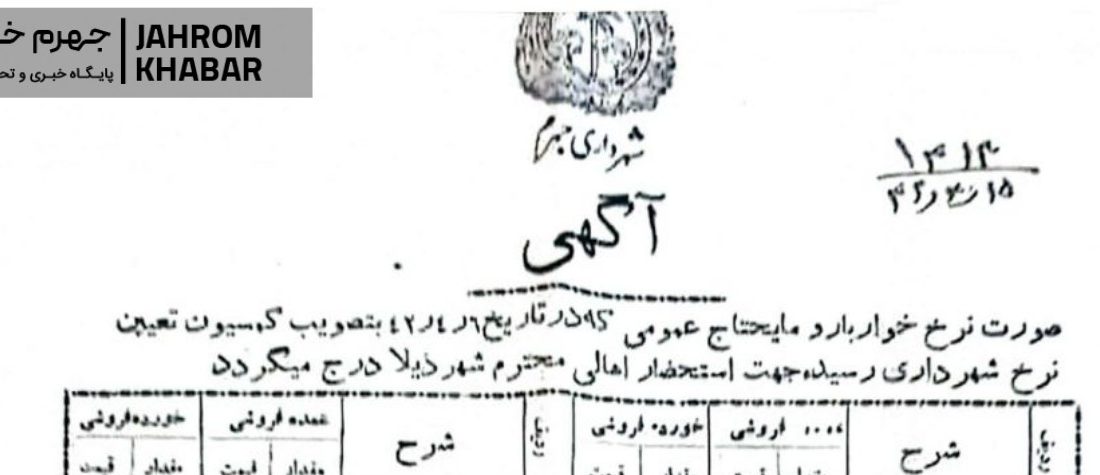 جهرم خ
JAHROM
پایگاه خبری و تح
KHABAR
شهرداری جهرم
۱۳۱۴
آگهی
صورت نرخ خواربار و مایحتاج عمومی که در تاریخ ٦ر٤ر٤٢ بتصویب کمسیون تعیین
نرخ شهرداری رسیده جهت استحضار اهالی محترم شهر ذیلا درج میگردد
ردیف شرح عمده فروشی خورده فروشی ردیف شرح عمده فروشی خورده فروشی
مقدار قیمت مقدار قیمت مقدار قیمت مقدار قیمت